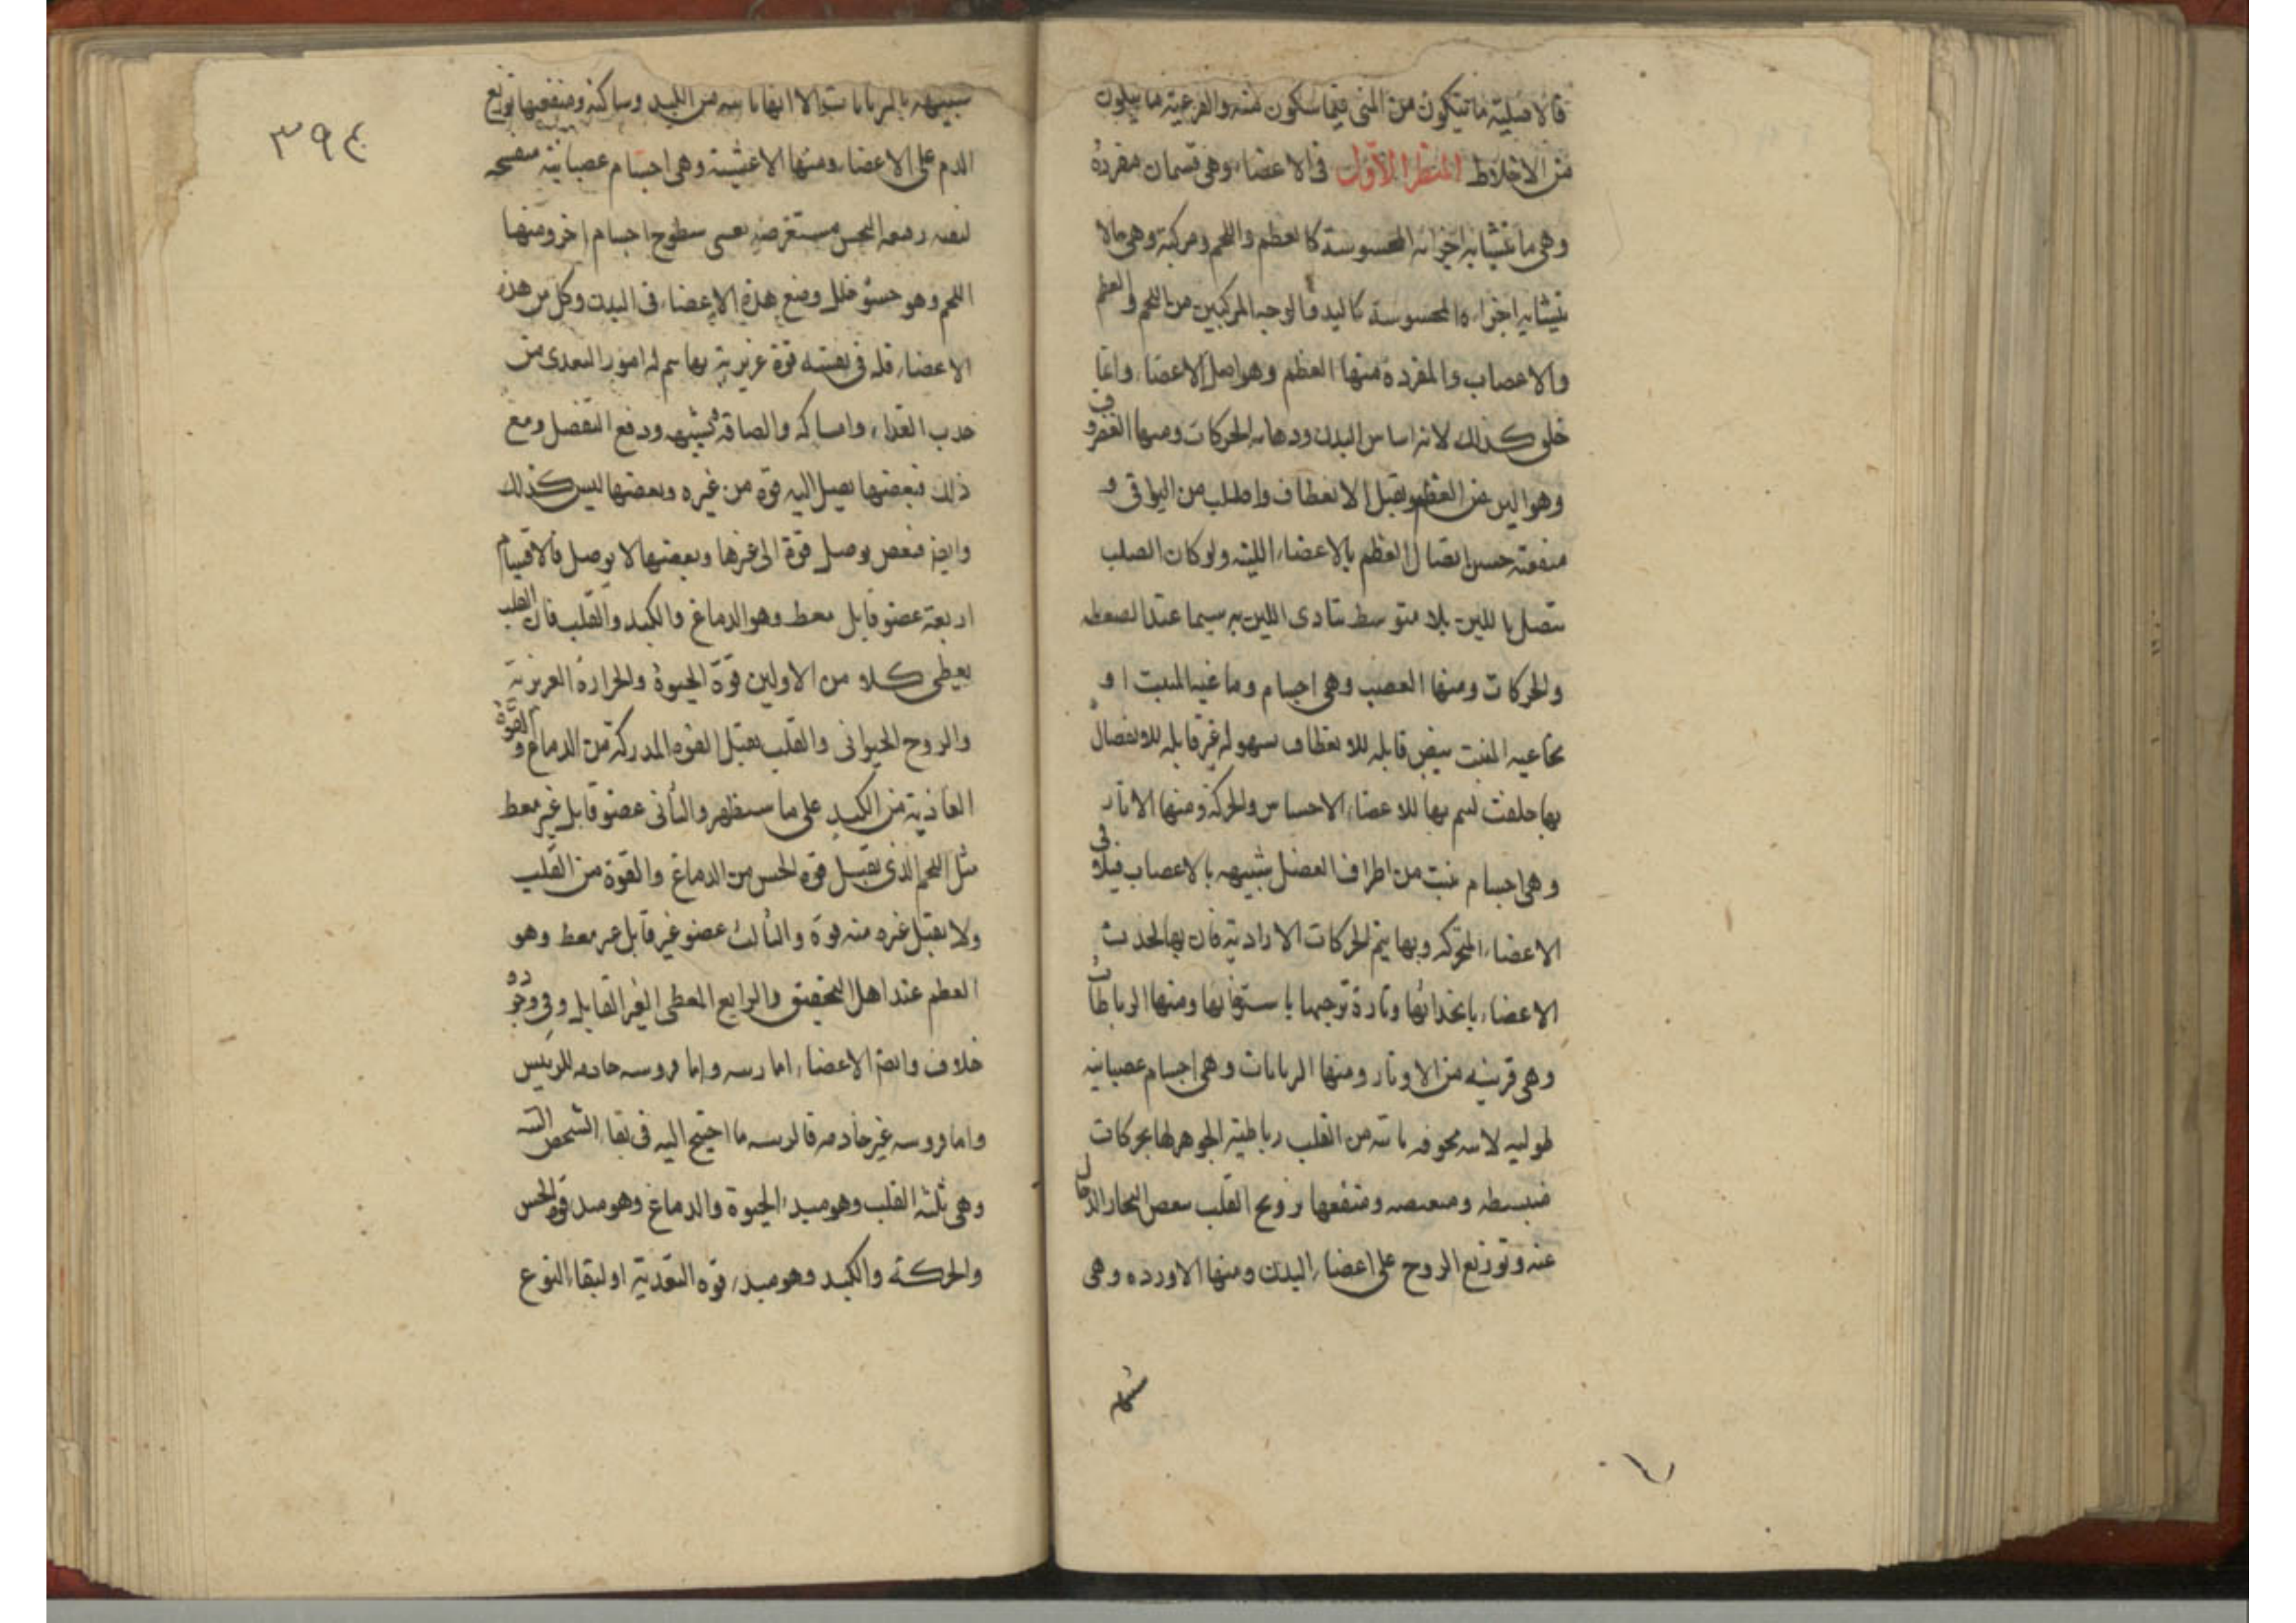 فالاصلية ما تتكون من المنى فيما سكون منه والفرعية ما يتكون
من الاخلاط المنظر الاول فى الاعضاء وهى قسمان مفردة
وهى ما تتشابه اجزائه المحسوسة كالعظم واللحم ومركبة وهى مالا
يتشابه اجزاءه المحسوسة كاليد والوجه المركبين من اللحم والعظم
والاعصاب والمفردة منها العظم وهو اصل الاعضاء وانما
خلق كذلك لانه اساس البدن ودعامه الحركات ومنها الغضروف
وهو الين من العظم ويقبل الانعطاف واصلب من البواقى و
منفعته حسن اتصال العظم بالاعضاء اللينه ولو كان الصلب
يتصل باللين بلا متوسط تتادى اللين به سيما عند الضغطه
والحركات ومنها العصب وهى اجسام دماغيه المنبت او
نخاعيه المنبت بيض قابله للانعطاف بسهوله غير قابله للانفصال
بها خلقت ليتم بها للاعضاء الاحساس والحركة ومنها الاوتار
وهى اجسام تنبت من اطراف العضل شبيهه بالاعصاب فيلاقى
الاعضاء المتحركه وبها يتم الحركات الارادية فان بها تجذب
الاعضاء بانجذابها وتارة توجبها باسترخائها ومنها الرباطات
وهى قريبه من الاوتار ومنها الشريانات وهى اجسام عصبانيه
طوليه مجوفه ناتيه من القلب رباطية الجوهر لها حركات
منبسطه ومنقبضه ومنفعها ترويح القلب بنفض البخار الدخانى
عنه وتوزيع الروح على اعضاء البدن ومنها الاورده وهى
شبيهه
٣٩٤
شبيهه بالشريانات الا انها ناتيه من الكبد وساكنه ومنفعتها توزيع
الدم على الاعضاء ومنها الاغشية وهى اجسام عصبانية
مستعرضه تغشى سطوح اجسام اخر ومنها
اللحم وهو حشو خلل وضع هذه الاعضاء فى البدن وكل من هذه
الاعضاء فله فى نفسه قوة غريزية بها يتم له امور التغذى من
جذب الغذاء وامساكه والصاقه وتشبيهه ودفع الفضل ومع
ذلك فبعضها يصل اليه قوة من غيره وبعضها ليس كذلك
وايضا فبعض يوصل قوة الى غيرها وبعضها لا يوصل فالاقسام
اربعة عضو قابل معط وهو الدماغ والكبد والقلب فان القلب
يعطى كلا من الاولين قوة الحيوة والحرارة الغريزية
والروح الحيوانى والقلب يقبل القوة المدركة من الدماغ والقوة
الغاذية من الكبد على ما سيظهر والثانى عضو قابل غير معط
مثل اللحم الذى يقبل قوة الحس من الدماغ والقوة من القلب
ولا يقبل غيره منه قوة والثالث عضو غير قابل غير معط وهو
العظم عند اهل التحقيق والرابع المعطى الغير القابل وفى وجوده
خلاف وايضا الاعضاء اما رئيسه واما مرؤسه خادمه للرئيس
واما مرؤسه غير خادمه فالرئيسه ما احتيج اليه فى بقاء الشخص
وهى ثلثه القلب وهو مبدء الحيوة والدماغ وهو مبدء قوة الحس
والحركة والكبد وهو مبدء قوه التغذية او لبقاء النوع